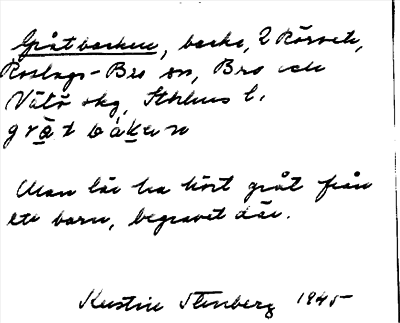 Gråtbacken, backe, 2 Rörvik,
Roslags-Bro sn, Bro och
Vätö skg, Sthlms l.
gråtbakən
Man lär ha hört gråt från
ett barn, begravet där.
Kerstin Stenberg 1945